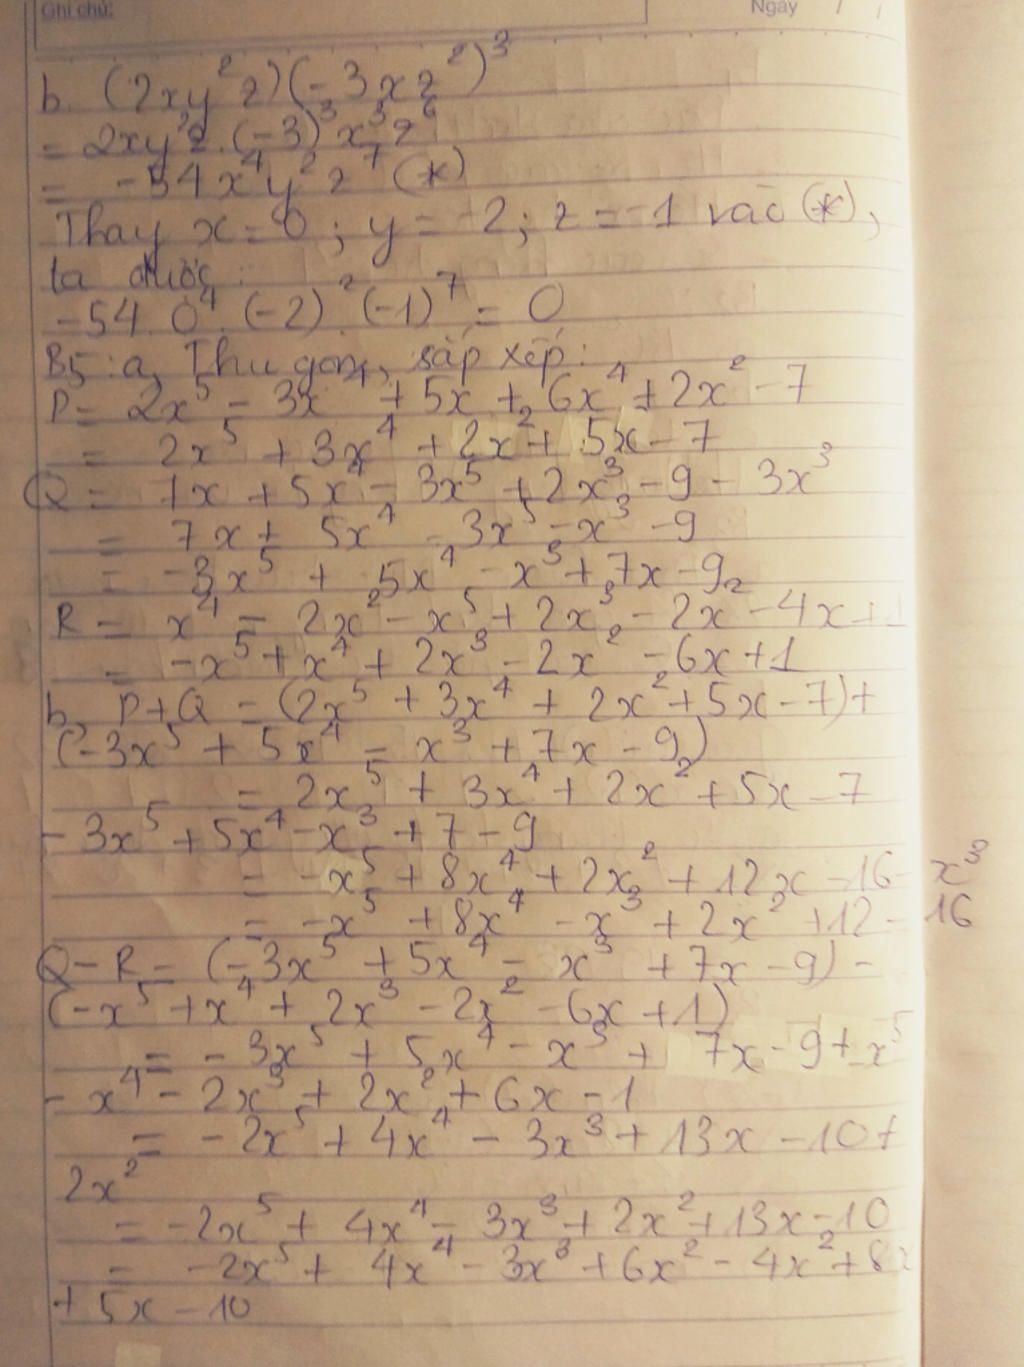 Ghi chú:
Ngày / /
b. (2xy²z)(-3xz²)³
= 2xy²z.(-3)³x³z⁶
= -54x⁴y²z⁷ (*)
Thay x=0; y= -2; z=-1 vào (*),
ta được:
-54.0⁴.(-2)².(-1)⁷ = 0
B5: a, Thu gọn, sắp xếp:
P= 2x⁵ - 3x⁴ + 5x + 6x⁴ + 2x² - 7
= 2x⁵ + 3x⁴ + 2x² + 5x - 7
Q = 7x + 5x⁴ - 3x⁵ + 2x³ - 9 - 3x³
= 7x + 5x⁴ - 3x⁵ - x³ - 9
= -3x⁵ + 5x⁴ - x³ + 7x - 9
R = x⁴ - 2x² - x⁵ + 2x³ - 2x - 4x + 1
= -x⁵ + x⁴ + 2x³ - 2x² - 6x + 1
b, P+Q = (2x⁵ + 3x⁴ + 2x² + 5x - 7) +
(-3x⁵ + 5x⁴ - x³ + 7x - 9)
= 2x⁵ + 3x⁴ + 2x² + 5x - 7
- 3x⁵ + 5x⁴ - x³ + 7 - 9
= -x⁵ + 8x⁴ + 2x² + 12x - 16 - x³
= -x⁵ + 8x⁴ - x³ + 2x² + 12 - 16
Q - R = (-3x⁵ + 5x⁴ - x³ + 7x - 9) -
(-x⁵ + x⁴ + 2x³ - 2x² - 6x + 1)
= -3x⁵ + 5x⁴ - x³ + 7x - 9 + x⁵
- x⁴ - 2x³ + 2x² + 6x - 1
= -2x⁵ + 4x⁴ - 3x³ + 13x - 10 +
2x²
= -2x⁵ + 4x⁴ - 3x³ + 2x² + 13x - 10
= -2x⁵ + 4x⁴ - 3x³ + 6x² - 4x² + 8x
+ 5x - 10